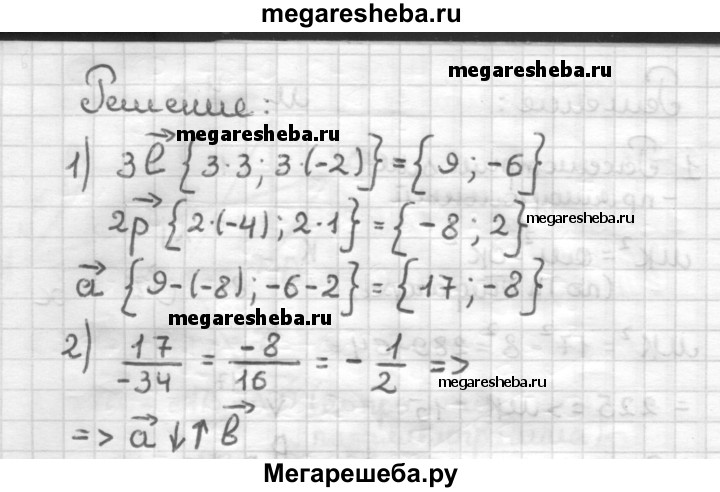 megaresheba.ru
megaresheba.ru
Решение:
megaresheba.ru
1) 3b⃗ {3·3; 3·(-2)} = {9; -6}
2p⃗ {2·(-4); 2·1} = {-8; 2}
megaresheba.ru
a⃗ {9-(-8); -6-2} = {17; -8}
megaresheba.ru
2) 17/-34 = -8/16 = -1/2 =>
megaresheba.ru
=> a⃗ ↓↑ b⃗
Мегарешеба.ру